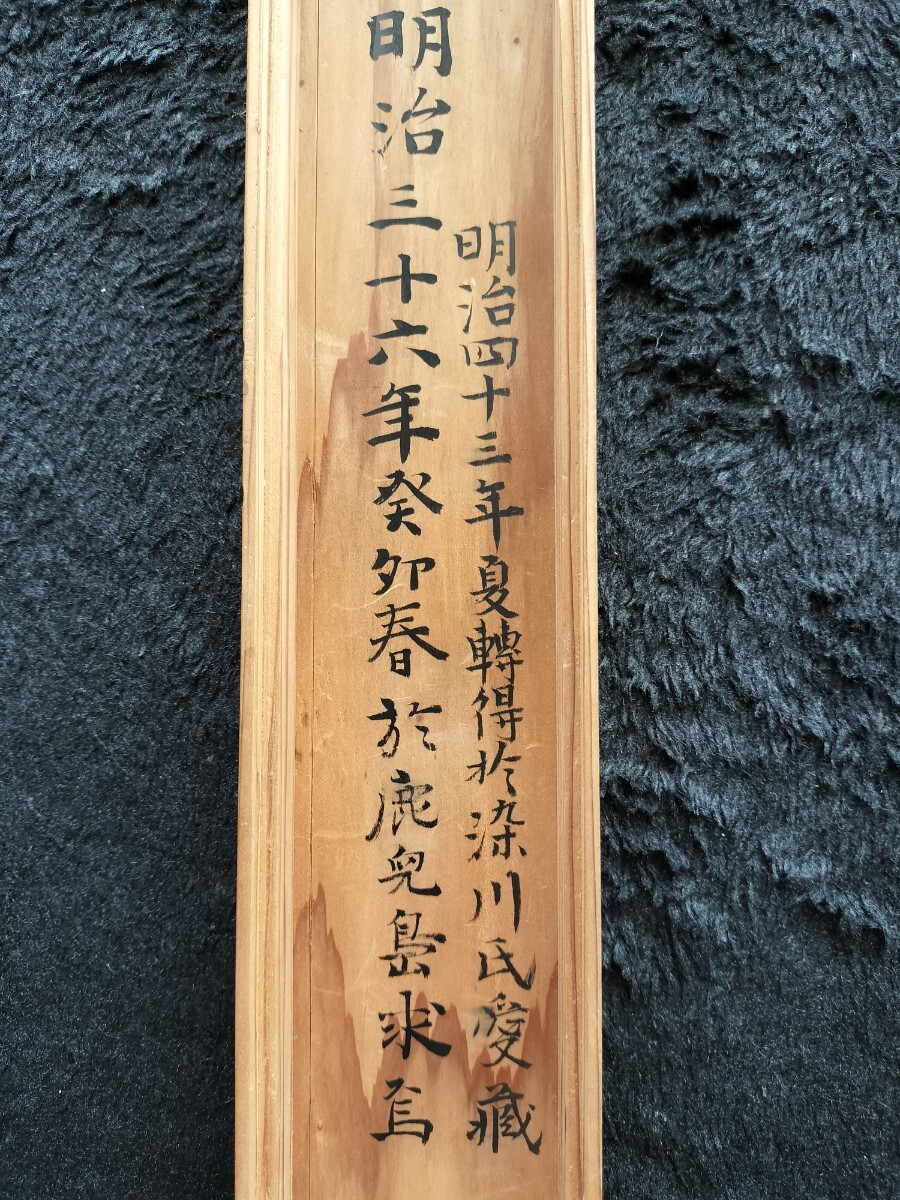 明治四十三年夏轉得於染川氏愛藏
明治三十六年癸卯春於鹿兒島求焉